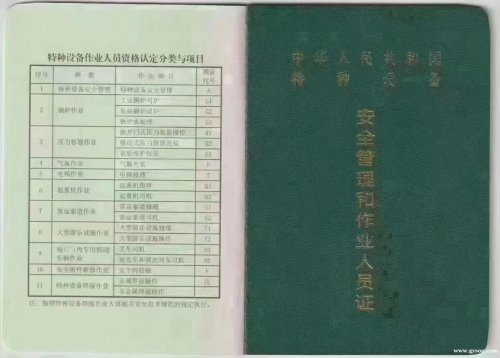 特种设备作业人员资格认定分类与项目
序号 种类 作业项目 项目代号
1 特种设备安全管理 特种设备安全管理 A
2 锅炉作业 工业锅炉司炉 G1
电站锅炉司炉 G2
锅炉水处理 G3
3 压力容器作业 快开门式压力容器操作 R1
移动式压力容器充装 R2
氧舱维护保养 R3
4 气瓶作业 气瓶充装 P
5 电梯作业 电梯修理 T
6 起重机作业 起重机指挥 Q1
起重机司机 Q2
7 客运索道作业 客运索道修理 S1
客运索道司机 S2
8 大型游乐设施作业 大型游乐设施修理 Y1
大型游乐设施操作 Y2
9 场(厂)内专用机动车辆作业 叉车司机 N1
观光车和观光列车司机 N2
10 安全附件维修作业 安全阀校验 F
11 特种设备焊接作业 金属焊接操作 注
非金属焊接操作
注:
中华人民共和国
特种设备
安全管理和作业人员证
www.gyson